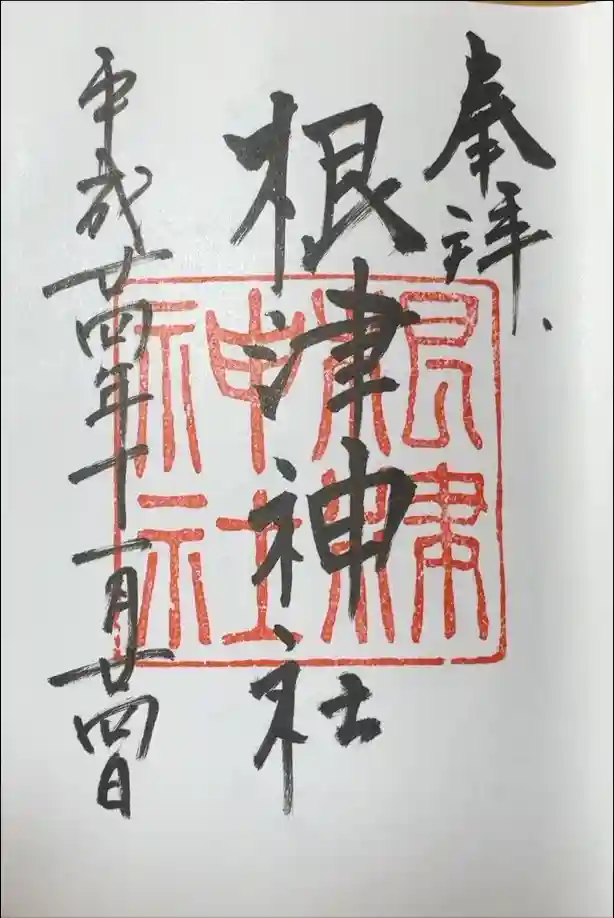 奉拝
根津神社
平成廿四年十一月廿四日
根津神社